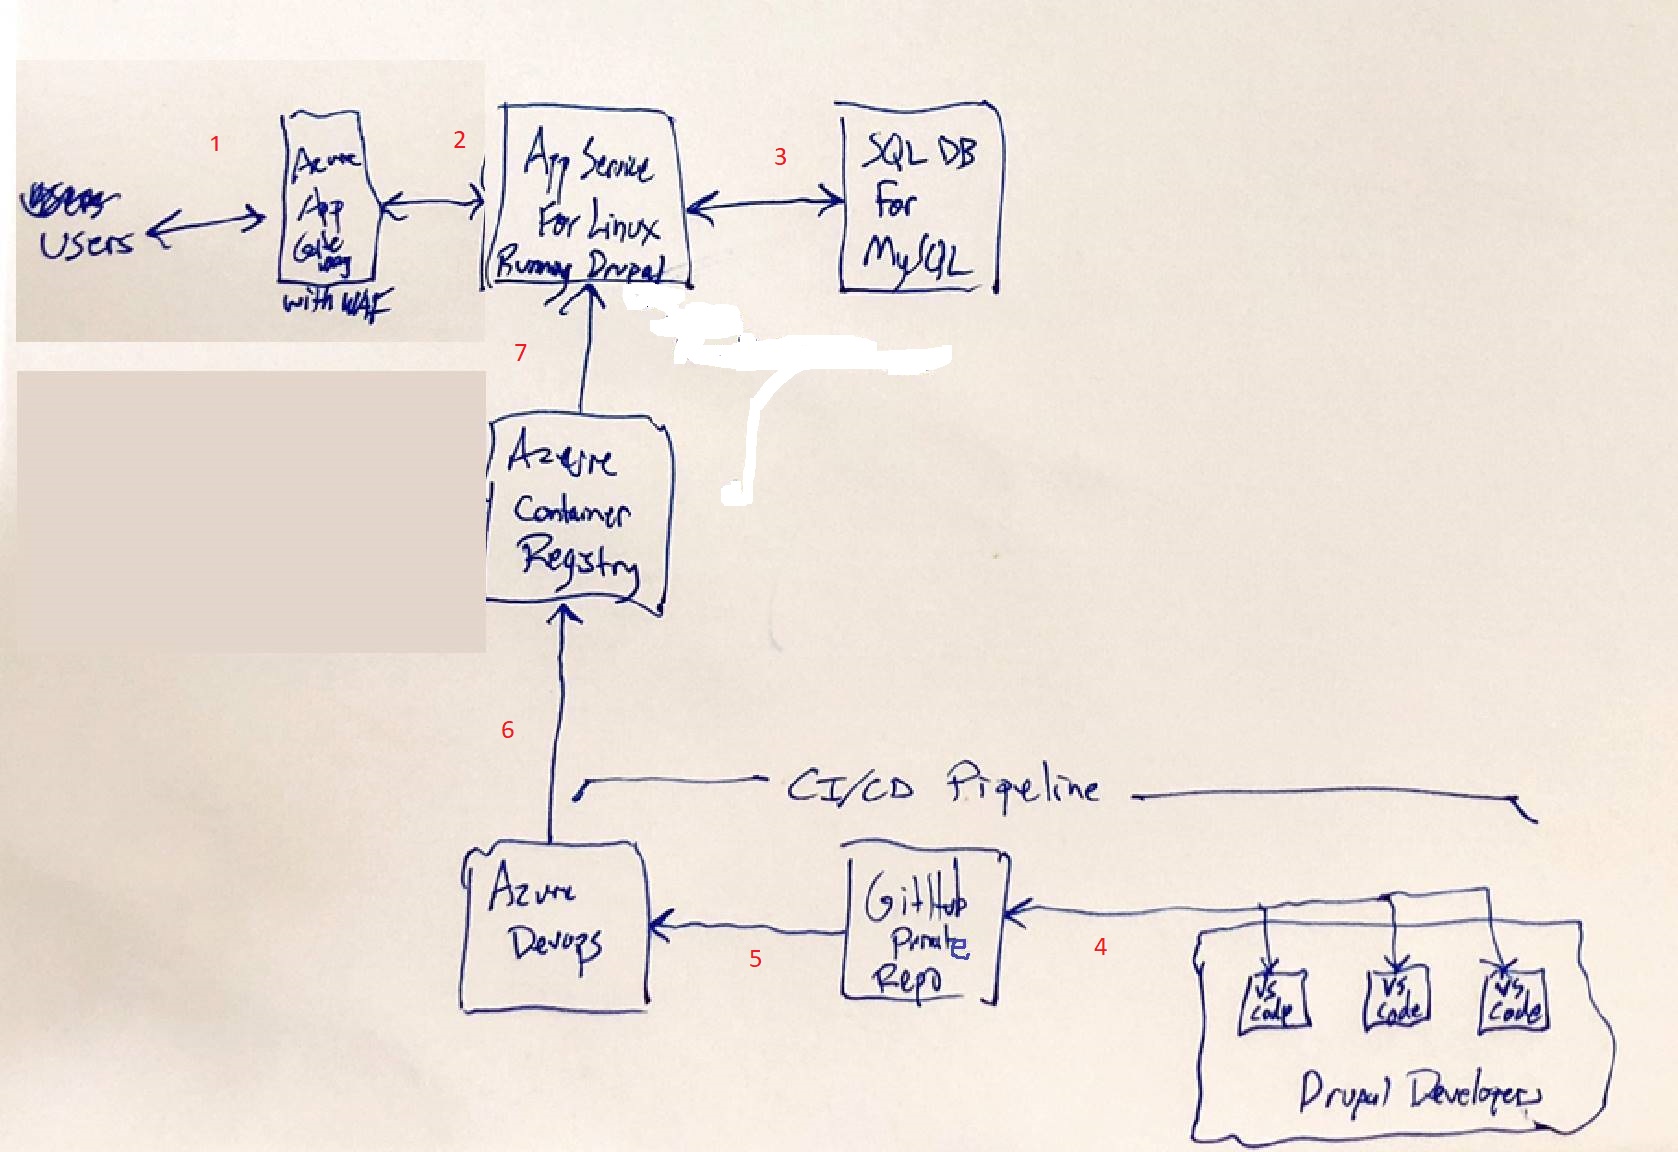 1
2
3
Users
Users
Azure
App
Gateway
with WAF
App Service
For Linux
Running Drupal
SQL DB
For
MySQL
7
Azure
Container
Registry
6
CI/CD Pipeline
Azure
Devops
5
GitHub
Private
Repo
4
VS
Code
VS
Code
VS
Code
Drupal Developers